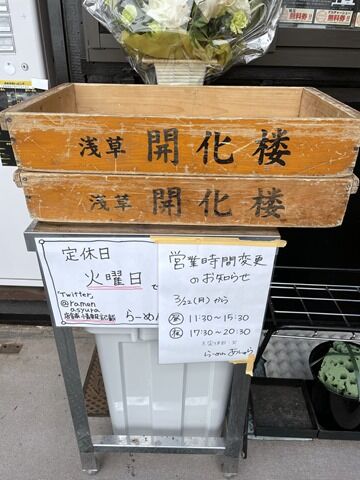 浅草 開化楼
浅草 開化楼
定休日
火曜日で
"Twitter"
@ramen
asyura
らーめん
営業時間変更
のお知らせ
3/22(月)から
昼 11:30~15:30
夜 17:30~20:30
らーめん あしゅら
無料券!!
無料券!!